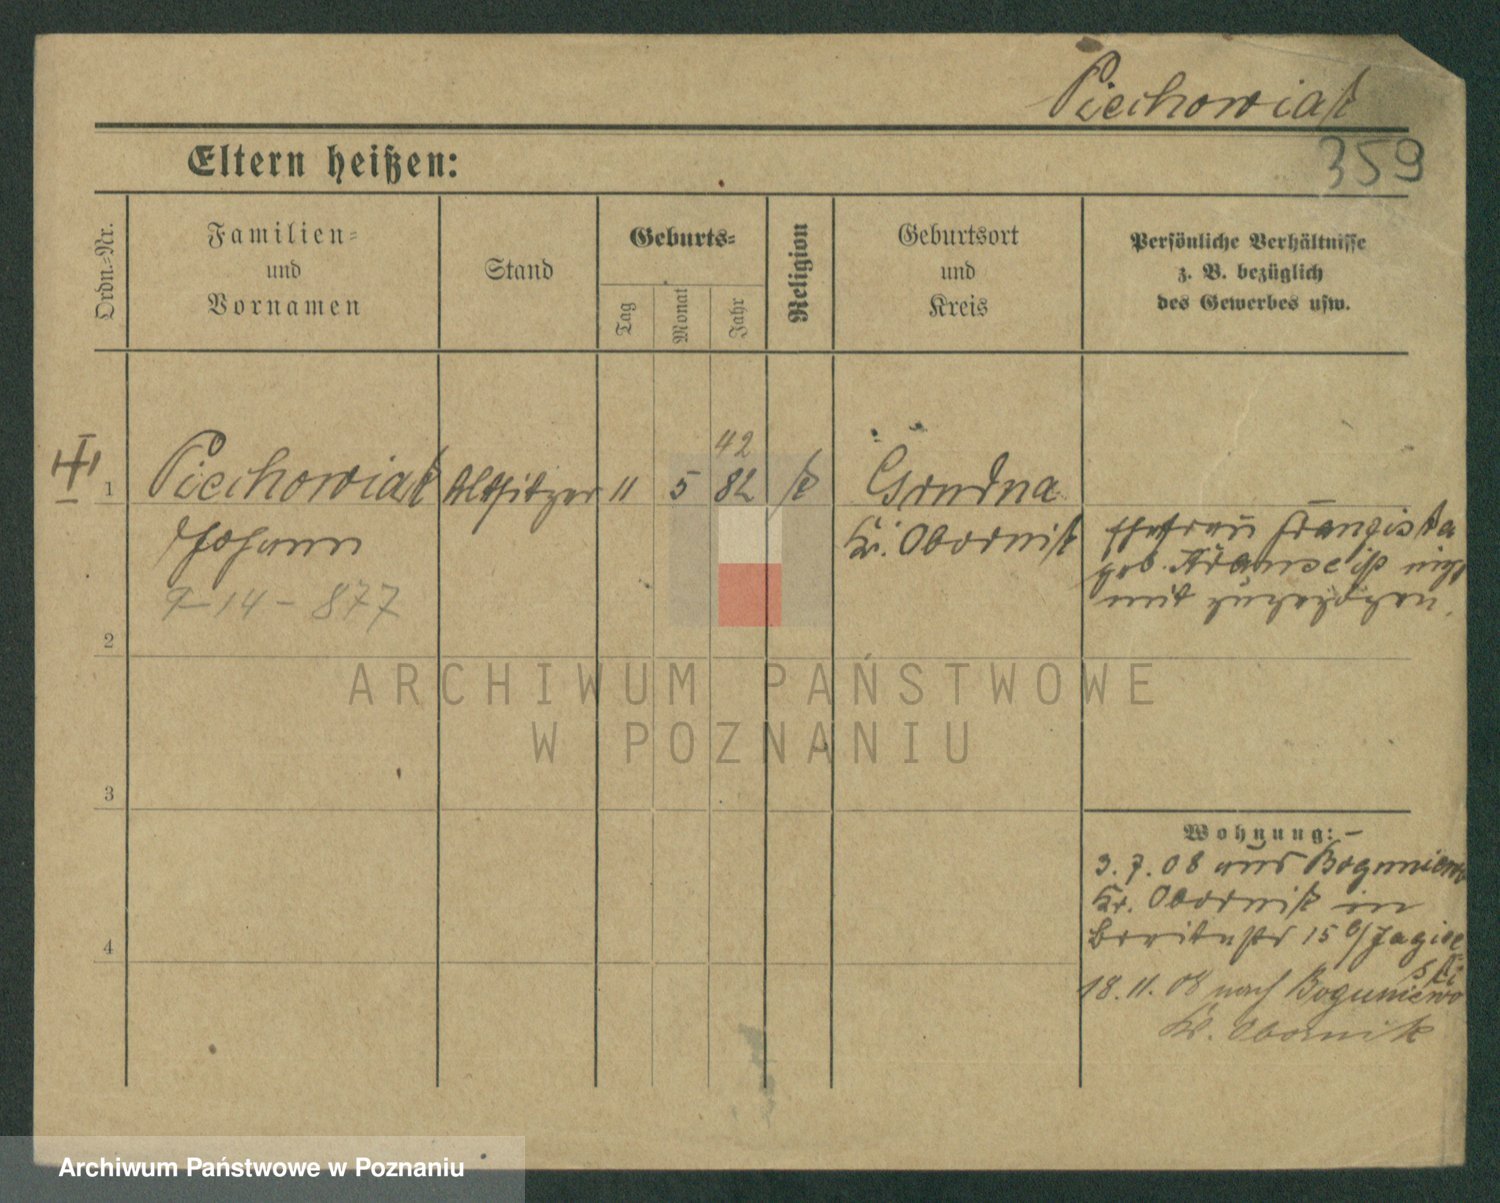 Piechowiak
359
Eltern heißen:
Ordn.-Nr.
Familien-
und
Vornamen
Stand
Geburts-
Tag
Monat
Jahr
Religion
Geburtsort
und
Kreis
Persönliche Verhältnisse
z. B. bezüglich
des Gewerbes usw.
42
1 Piechowiak Altsitzer 11 5 82 k Grudna
Johann Kr. Obornik
Ehefrau Franziska
geb. Adamc
mit zugezogen.
14-877
2
3
4
ARCHIWUM PAŃSTWOWE
W POZNANIU
Wohnung:
3.7.08 aus Boguniewo
Kr. Obornik in
Breitestr 15 b/Jagiel
ski
18.11.08 nach Boguniewo
Kr. Obornik
Archiwum Państwowe w Poznaniu